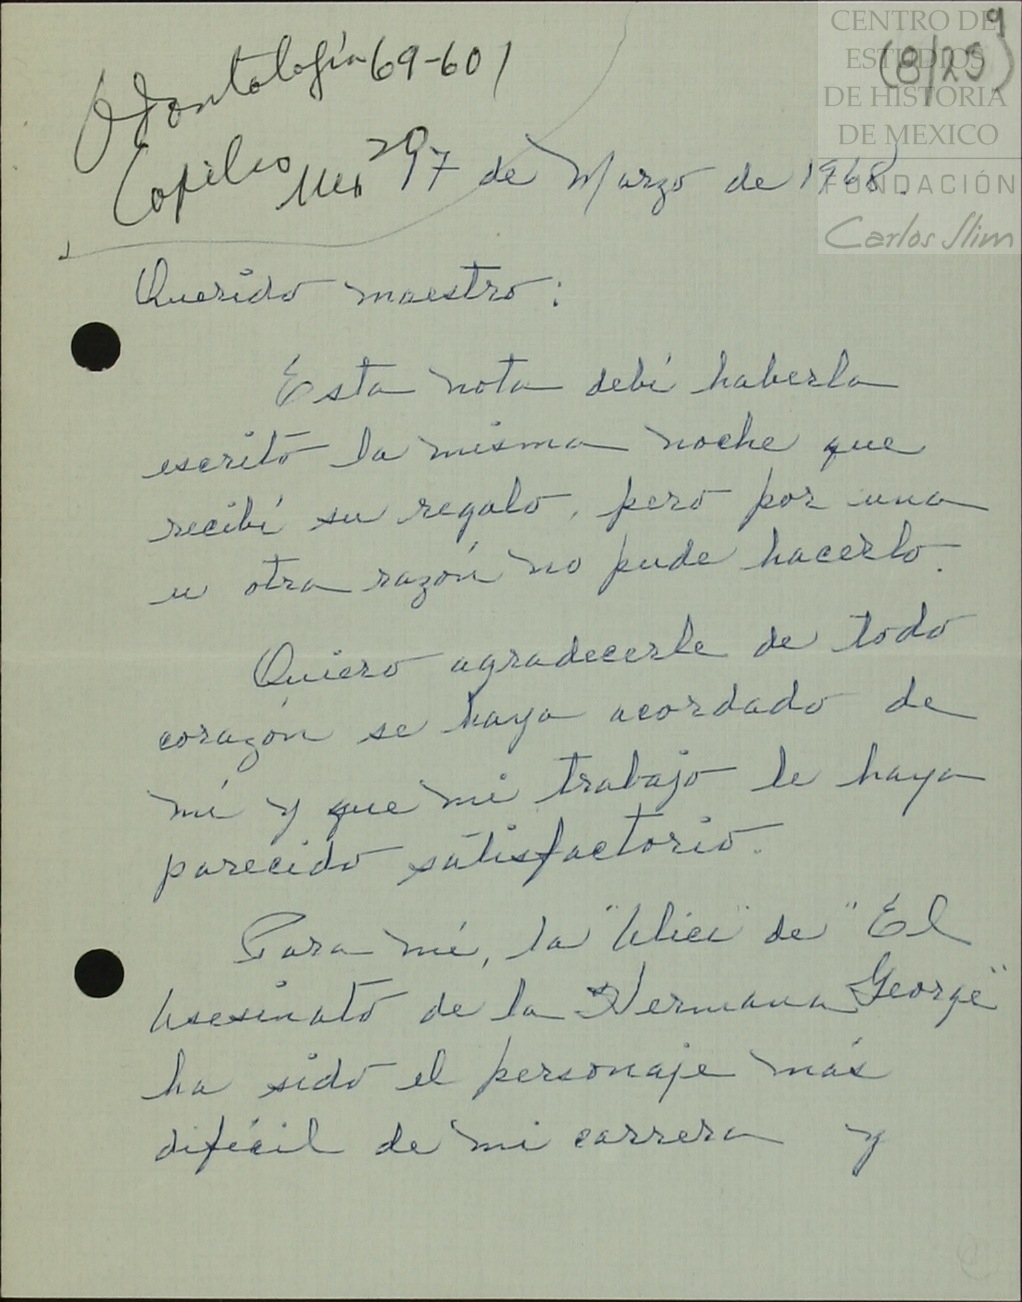 CENTRO DE
ESTUDIOS
DE HISTORIA
DE MEXICO
FUNDACIÓN
Carlos Slim
9
(8/25)
Odontología 69-601
Copilco Mex 20
17 de Marzo de 1968.
Querido maestro:
Esta nota debí haberla
escrito la misma noche que
recibí su regalo, pero por una
u otra razón no pude hacerlo.
Quiero agradecerle de todo
corazón se haya acordado de
mí y que mi trabajo le haya
parecido satisfactorio.
Para mí, la "Alice" de "El
Asesinato de la Hermana George"
ha sido el personaje más
difícil de mi carrera y